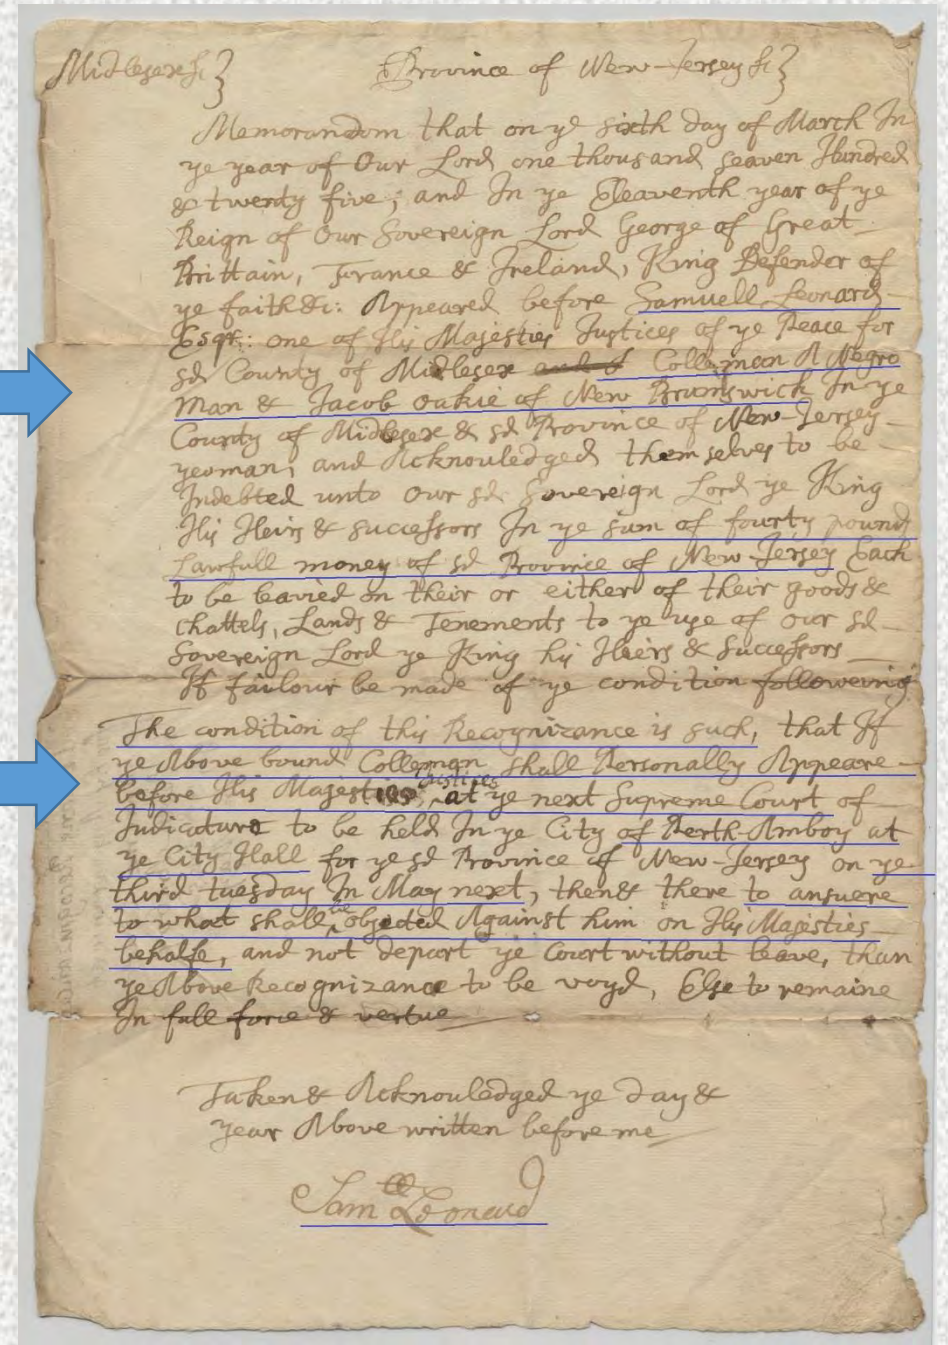 Middlesex Sc } Province of New-Jersey Sc }
Memorandom that on ye sixth day of March In
ye year of Our Lord one thousand seaven Hundred
& twenty five; and In ye Eleaventh year of ye
Reign of Our Sovereign Lord George of Great
Brittain, France & Ireland, King Defender of
ye faith &c: Appeared before Samuell Leonard
Esqr: one of His Majesties Justices of ye Peace for
sd County of Midlesex and of Colleman A Negro
Man & Jacob Oakie of New Brunswick In ye
County of Midlesex & sd Province of New-Jersey
yeoman, and Acknouledged themselves to be
Indebted unto Our sd Sovereign Lord ye King
His Heirs & successors In ye sum of fourty pound
Lawfull money of sd Province of New-Jersey Each
to be leavied on their or either of their goods &
chattels, Lands & Tenements to ye use of our sd
Sovereign Lord ye King his Heiers & Successors
If failour be made of ye condition followeing
The condition of this Recognizance is such, that If
ye Above bound Colleman shall Personally Appeare
before His Majesties Justices at ye next Supreme Court of
Judicature to be held In ye City of Perth-Amboy at
ye City Hall for ye sd Province of New-Jersey on ye
third tuesday In May next, then & there to answere
to what shall be objected Against him on His Majesties
behalfe, and not depart ye Court without leave, than
ye Above Recognizance to be voyd, Else to remaine
In full force & vertue
Taken & Acknouledged ye day &
year Above written before me
Samll Leonard